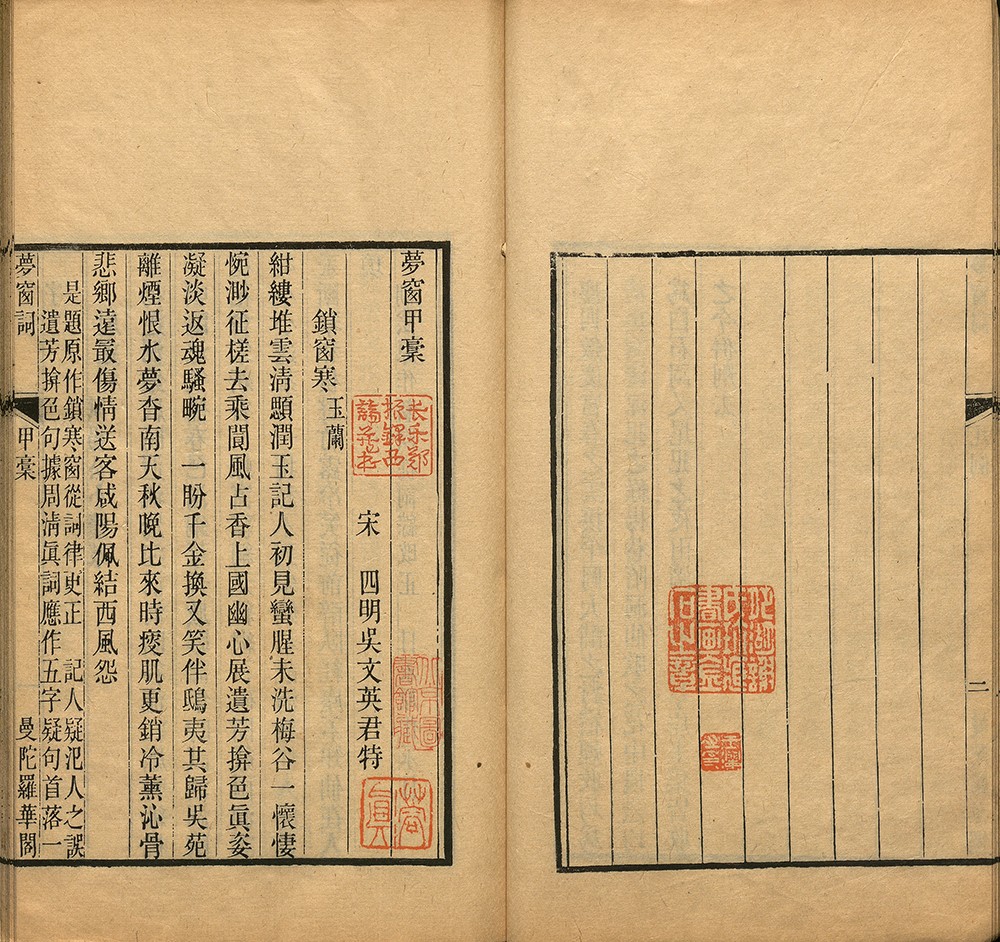 二
夢窗甲稾
長樂鄭
振鐸西
諦藏書
宋 四明吳文英君特
北京圖
書館藏
鎖窗寒 玉蘭
紺縷堆雲淸顋潤玉記人初見蠻腥未洗梅谷一懷悽
惋渺征槎去乘閬風占香上國幽心展遺芳揜色眞姿
凝淡返魂騷畹 一盼千金換又笑伴鴟夷其歸吳苑
離煙恨水夢杳南天秋晚比來時瘦肌更銷冷薰沁骨
悲鄉遠㝡傷情送客咸陽佩結西風怨
是題原作鎖寒窗從詞律更正 記人疑汜人之誤
遺芳揜色句據周淸眞詞應作五字疑句首落一
夢窗詞 甲稾 曼陀羅華閣